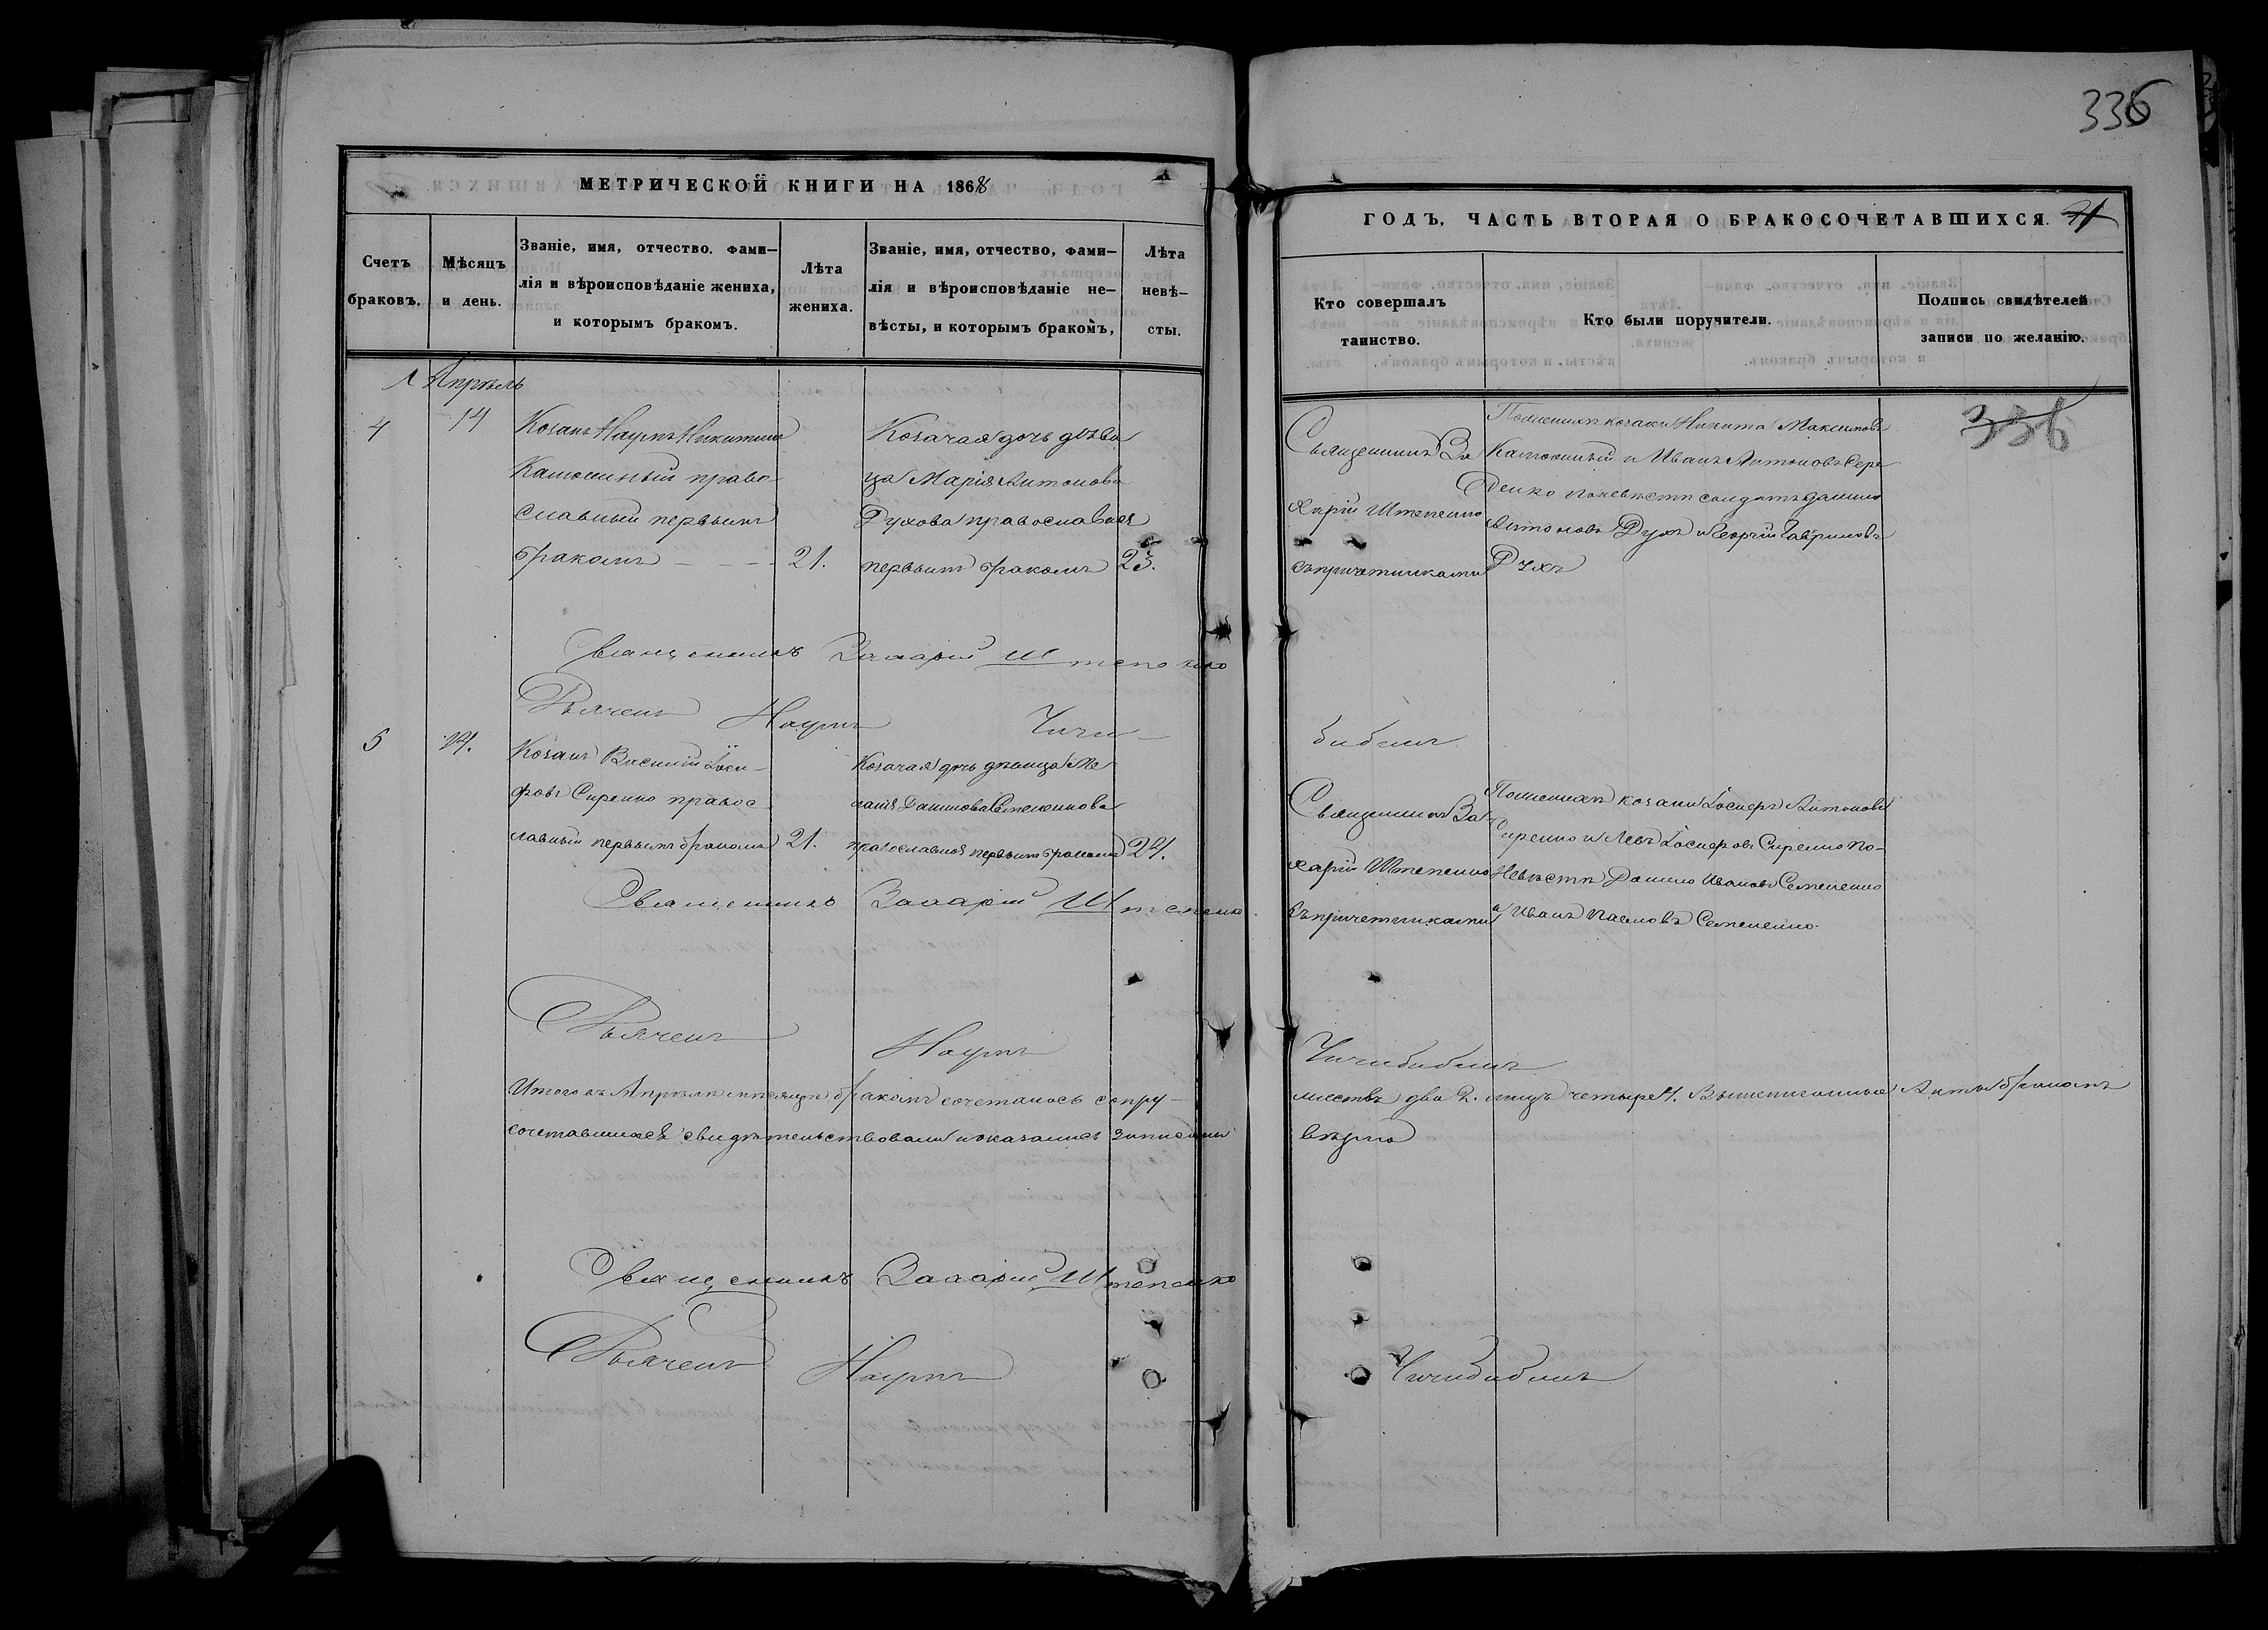 336
МЕТРИЧЕСКОЙ КНИГИ НА 1868
ГОДЪ, ЧАСТЬ ВТОРАЯ О БРАКОСОЧЕТАВШИХСЯ.
Счетъ
браковъ.
Мѣсяцъ
и день.
Званіе, имя, отчество, фами–
лія и вѣроисповѣданіе жениха,
и которымъ бракомъ.
Лѣта
жениха.
Званіе, имя, отчество, фами–
лія и вѣроисповѣданіе не–
вѣсты, и которымъ бракомъ,
Лѣта
невѣ–
сты.
Кто совершалъ
таинство.
Кто были поручители.
Подпись свидѣтелей
записи по желанію.
Апрѣль
4
14
Козакъ Наумъ Никитинъ
православный первымъ
бракомъ
21.
Козачая дочь дѣви
ца Марія Антонова
Духова православная
первымъ бракомъ
23.
Священникъ За
харій Штепенко
съ причетниками
По женихѣ козаки Никита Максимовъ
и Иванъ Антоновъ Сере
денко по невѣстѣ солдатъ Данило
Антоновъ Духъ и Георгій Гавриловъ
Духъ
336
Священникъ Захарій Штепенко
Дьячекъ Наумъ Чичи–
бабинъ
5
14.
Козакъ Василій Іоси–
фовъ Сиренко правос
лавный первымъ бракомъ
21.
Козачая дочь дѣвица Ме
ланія Данилова Семененкова
православная первымъ бракомъ
24.
Священникъ За
харій Штепенко
съ причетниками
По женихѣ козаки Іосифъ Антоновъ
Сиренко и Левъ Іосифовъ Сиренко по–
невѣстѣ Данило Ивановъ Семененко
и Иванъ Павловъ Семененко.
Священникъ Захарій Штепенко
Дьячекъ Наумъ
Итого въ Апрѣлѣ мѣсяцѣ бракомъ сочеталось супру–
жествъ два 2. лицъ четыре 4. Вышеписанные Акты бракомъ
сочетавшихся свидѣтельствовали и оказались записаны
вѣрно
Священникъ Захарій Штепенко
Дьячекъ Наумъ